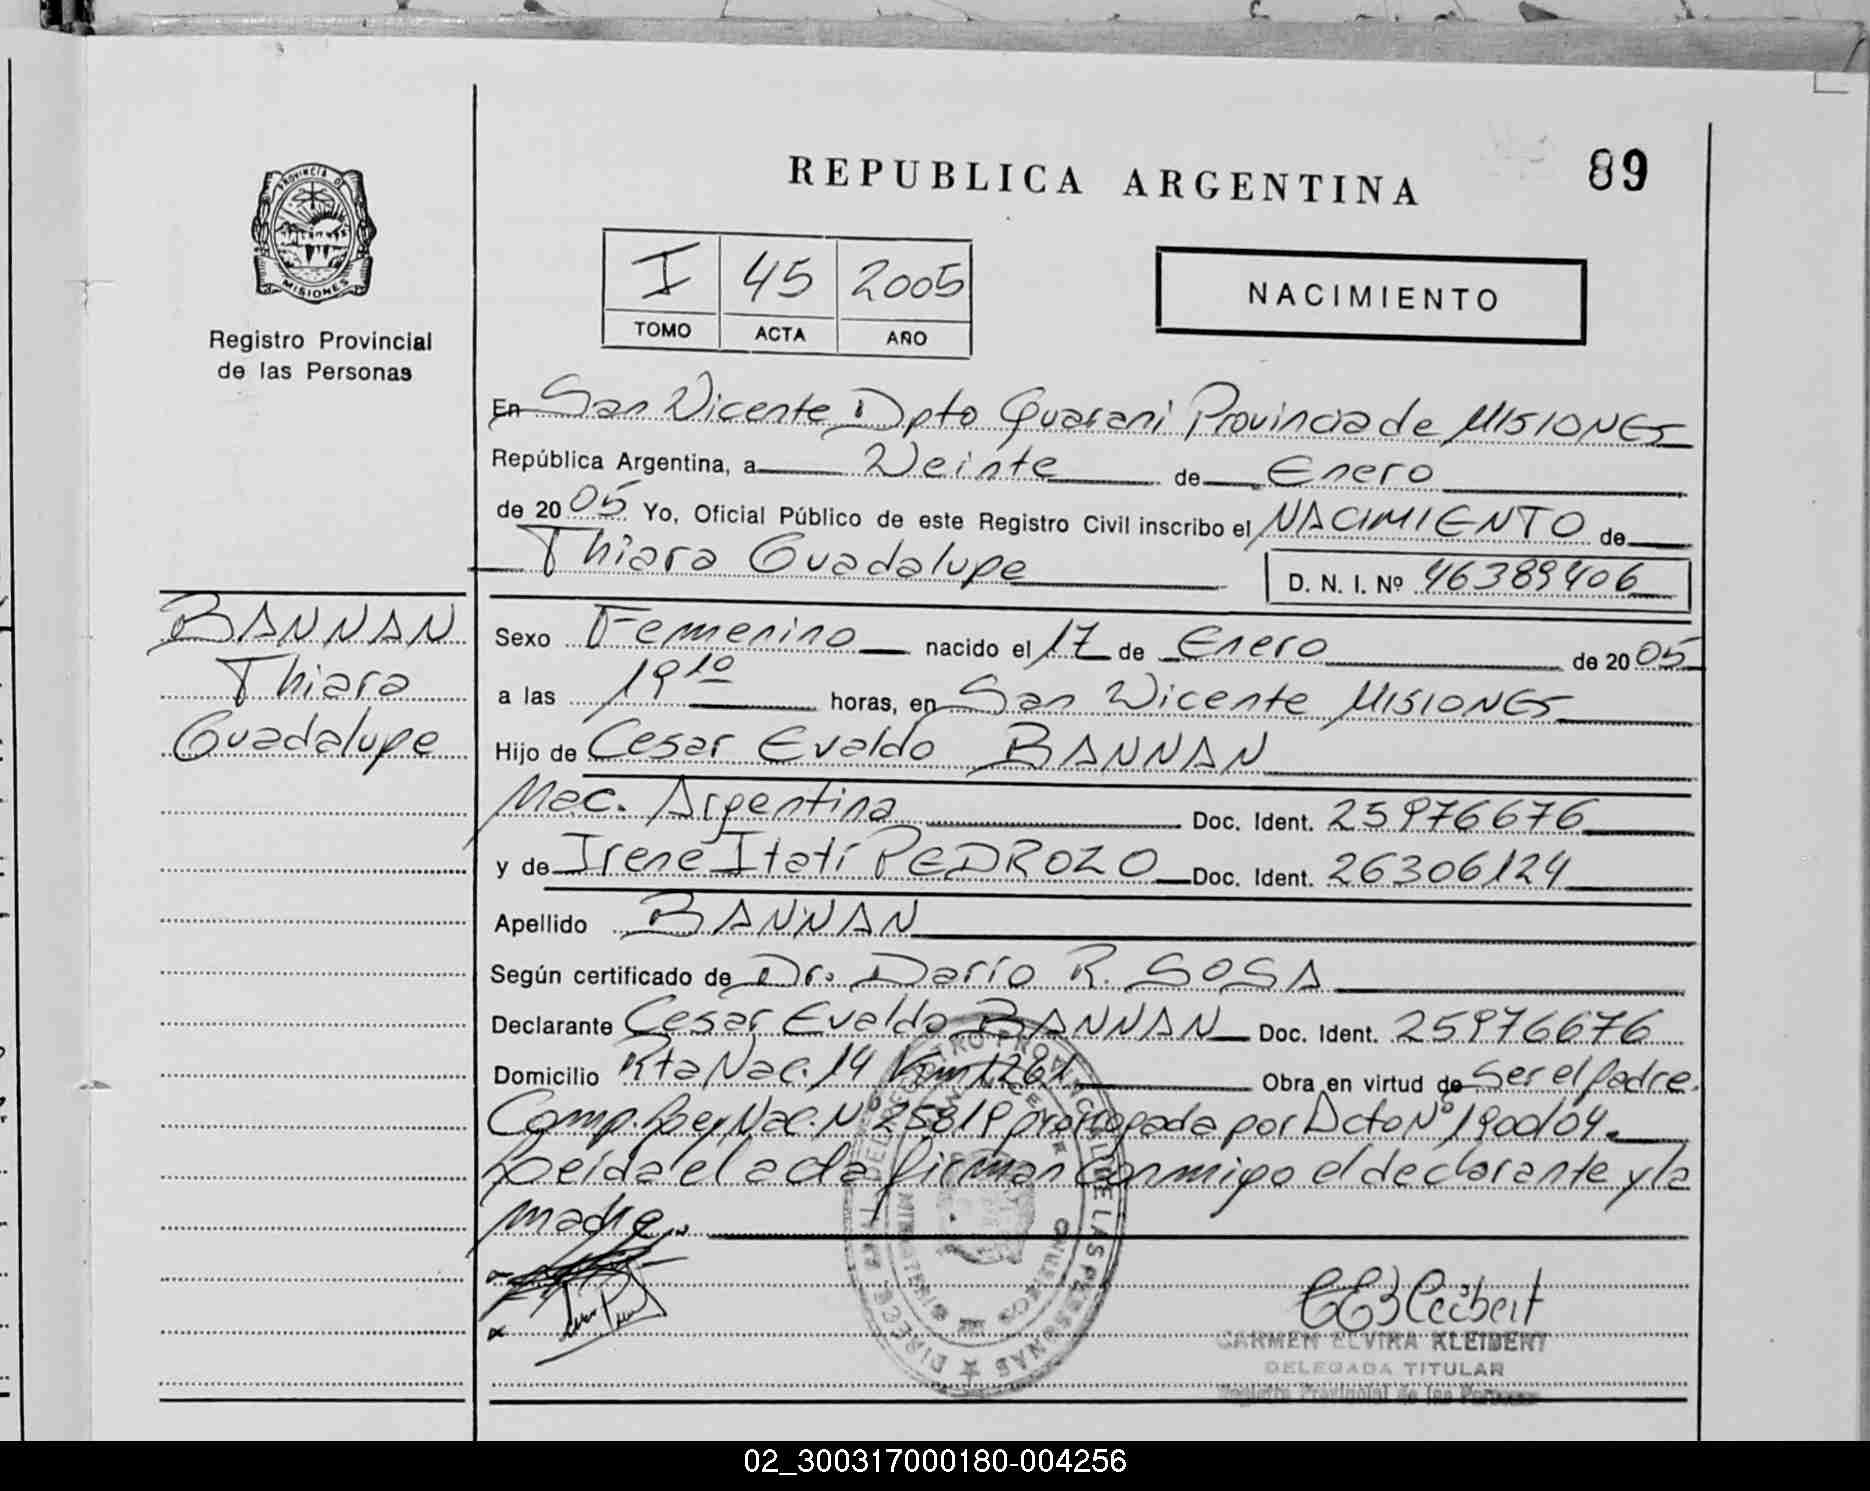 REPUBLICA ARGENTINA
89
PROVINCIA DE
MISIONES
Registro Provincial
de las Personas
I 45 2005
TOMO ACTA AÑO
NACIMIENTO
En San Vicente Dpto Guarani Provincia de MISIONES
República Argentina, a Veinte de Enero
de 2005 Yo, Oficial Público de este Registro Civil inscribo el NACIMIENTO de
Thiara Guadalupe
D. N. I. Nº 46389406
BANNAN
Thiara
Guadalupe
Sexo Femenino nacido el 17 de Enero de 2005
a las 19 10 horas, en San Vicente MISIONES
Hijo de Cesar Evaldo BANNAN
Nac. Argentina Doc. Ident. 25976676
y de Irene Itatí PEDROZO Doc. Ident. 26306124
Apellido BANNAN
Según certificado de Dr. Darío R. SOSA
Declarante Cesar Evaldo BANNAN Doc. Ident. 25976676
Domicilio Rta Nac. 14 Km 1261 Obra en virtud de Ser el padre.
Comp. Ley Nac. Nº 25819 prorrogada por Dcto Nº 1900/04.
Leída el acta firman conmigo el declarante y la
madre.
CARMEN ELVIRA KLEIBERT
DELEGADA TITULAR
Registro Provincial de las Personas
02_300317000180-004256